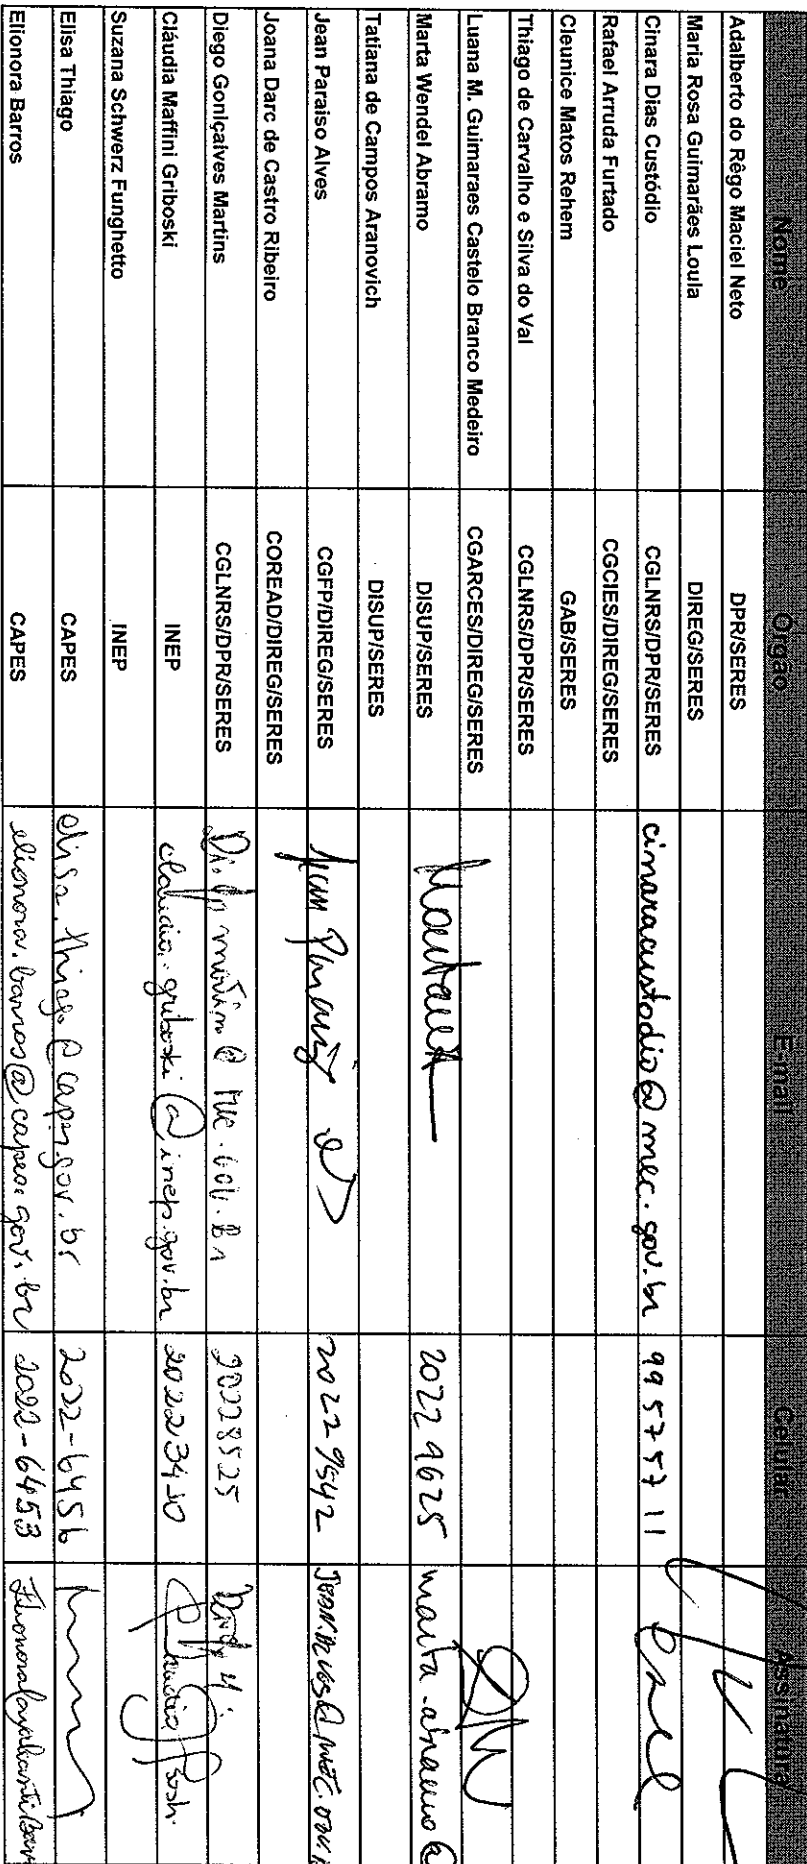 Nome Órgão E-mail Celular Assinatura
Adalberto do Rêgo Maciel Neto DPR/SERES
Maria Rosa Guimarães Loula DIREG/SERES
Cinara Dias Custódio CGLNRS/DPR/SERES cinaracustodio@mec.gov.br 99575711
Rafael Arruda Furtado CGCIES/DIREG/SERES
Cleunice Matos Rehem GAB/SERES
Thiago de Carvalho e Silva do Val CGLNRS/DPR/SERES
Luana M. Guimaraes Castelo Branco Medeiro CGARCES/DIREG/SERES
Marta Wendel Abramo DISUP/SERES 20229625 marta.abramo@
Tatiana de Campos Aranovich DISUP/SERES
Jean Paraiso Alves CGFP/DIREG/SERES 20229542
Joana Darc de Castro Ribeiro COREAD/DIREG/SERES
Diego Gonlçalves Martins CGLNRS/DPR/SERES 20228525
Cláudia Maffini Griboski INEP claudia.griboski@inep.gov.br 20223410
Suzana Schwerz Funghetto INEP
Elisa Thiago CAPES elisa.thiago@capes.gov.br 2022-6456
Elionora Barros CAPES elionora.barros@capes.gov.br 2022-6453